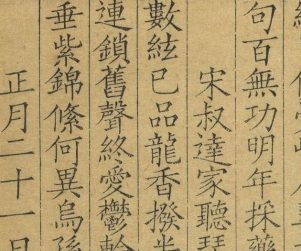 句百無功明年採藥
宋叔達家聽
數絃已品龍香撥半
連鎖舊聲終愛鬱輪
垂紫錦絛何異烏孫
正月二十一日